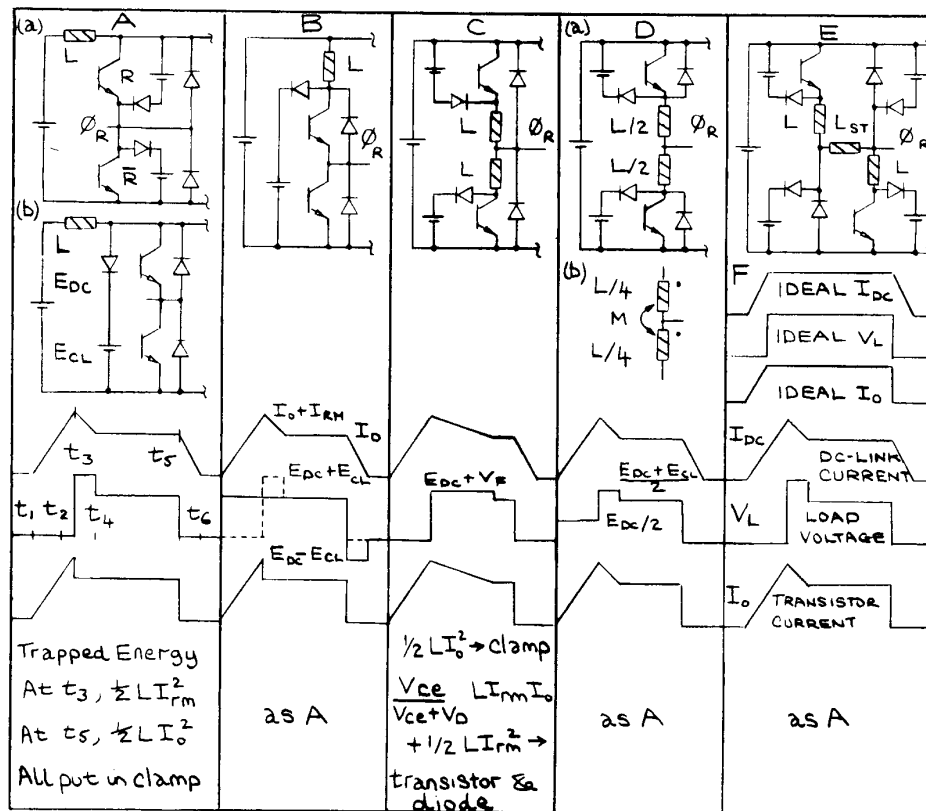 A
(a)
L
R
Ø_R
R̅
(b)
L
E_DC
E_CL
t_3
t_5
t_1
t_2
t_4
t_6
Trapped Energy
At t_3, ½LI_rm²
At t_5, ½LI_o²
All put in clamp
B
L
Ø_R
I_O+I_RM
I_O
E_DC+E_CL
E_DC-E_CL
as A
C
L
Ø_R
L
E_DC+V_F
½LI_o²→clamp
Vce/Vce+V_D LIrmI_o
+1/2 LIrm²→
transistor &
diode
D
(a)
L/2
Ø_R
L/2
(b)
L/4
M
L/4
E_DC+E_CL/2
E_DC/2
as A
E
L
L_ST
Ø_R
L
F
IDEAL I_DC
IDEAL V_L
IDEAL I_O
I_DC
DC-LINK
CURRENT
V_L
LOAD
VOLTAGE
I_O
TRANSISTOR
CURRENT
as A